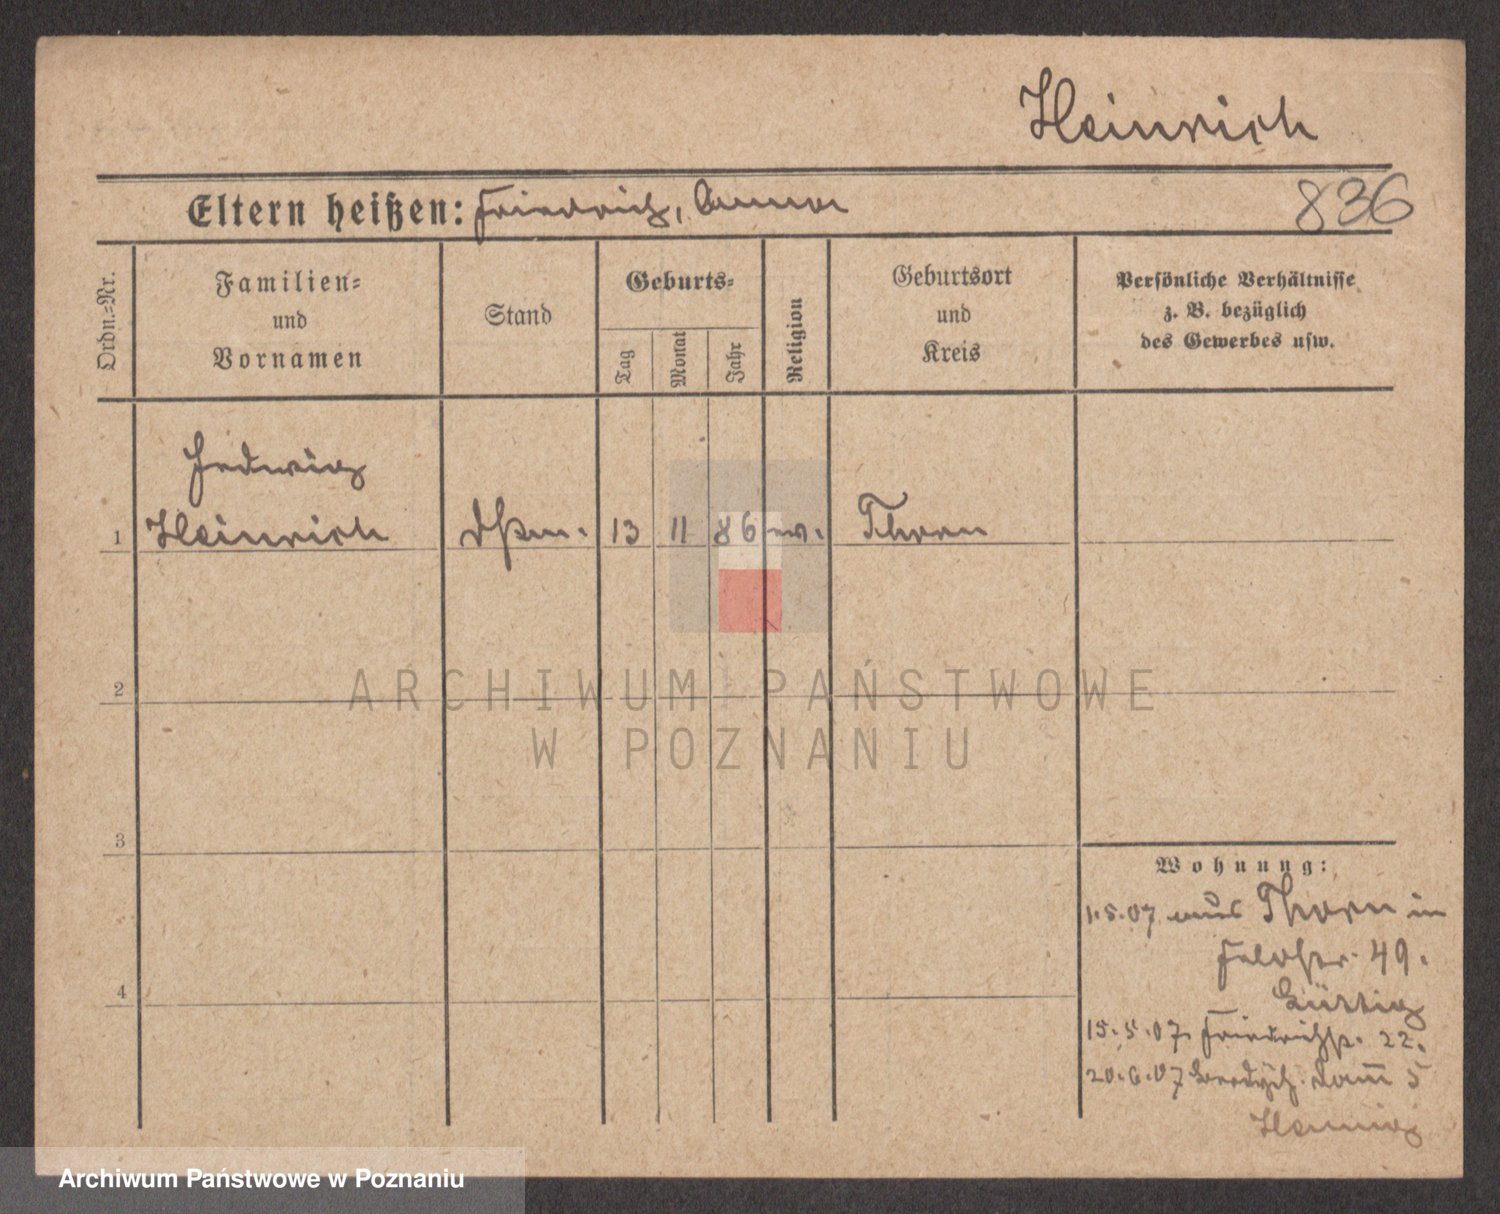 Heinrich
Eltern heißen: Friedrich, Anna
836
Ordn.-Nr.
Familien-
und
Vornamen
Stand
Geburts-
Tag
Monat
Jahr
Religion
Geburtsort
und
Kreis
Persönliche Verhältnisse
z. B. bezüglich
des Gewerbes usw.
Hedwig
1 Heinrich 13 11 86 ev. Thorn
2
3
4
ARCHIWUM PAŃSTWOWE
W POZNANIU
Wohnung:
1.5.07 aus Thorn in
Feldstr. 49.
15.5.07. Friedrichstr. 22.
20.6.07 Damm 5
Hennig
Archiwum Państwowe w Poznaniu